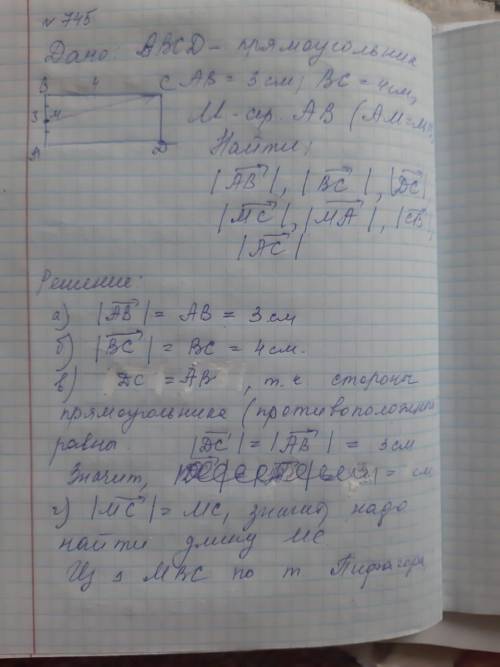 № 745
Дано: ABCD - прямоугольник
B 4 C AB = 3 см; BC = 4 см,
3 M M - сер. AB (AM=M
A D Найти:
|AB|, |BC|, |DC|
|MC|, |MA|, |CB|,
|AC|
Решение:
а) |AB| = AB = 3 см
б) |BC| = BC = 4 см.
в) DC = AB, т.к стороны
прямоугольника (противоположные
равны |DC| = |AB| = 3 см
Значит, = см
г) |MC| = MC, значит, надо
найти длину MC
Из MBC по т Пифагора